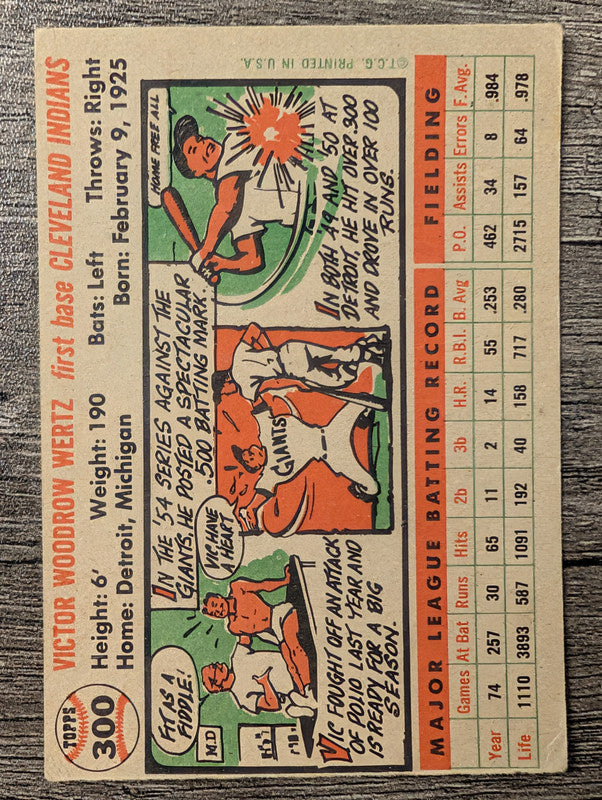 TOPPS
300
VICTOR WOODROW WERTZ first base CLEVELAND INDIANS
Height: 6' Weight: 190 Bats: Left Throws: Right
Home: Detroit, Michigan Born: February 9, 1925
FIT AS A
FIDDLE!
M.D
VIC FOUGHT OFF AN ATTACK
OF POLIO LAST YEAR AND
IS READY FOR A BIG
SEASON.
IN THE '54 SERIES AGAINST THE
GIANTS, HE POSTED A SPECTACULAR
.500 BATTING MARK.
VIC, HAVE
A HEART
GIANTS
HOME FREE ALL
IN BOTH '49 AND '50 AT
DETROIT, HE HIT OVER .300
AND DROVE IN OVER 100
RUNS.
©T.C.G. PRINTED IN U.S.A.
MAJOR LEAGUE BATTING RECORD FIELDING
Games At Bat Runs Hits 2b 3b H.R. R.B.I. B. Avg P.O. Assists Errors F. Avg.
Year 74 257 30 65 11 2 14 55 .253 462 34 8 .984
Life 1110 3893 587 1091 192 40 158 717 .280 2715 157 64 .978